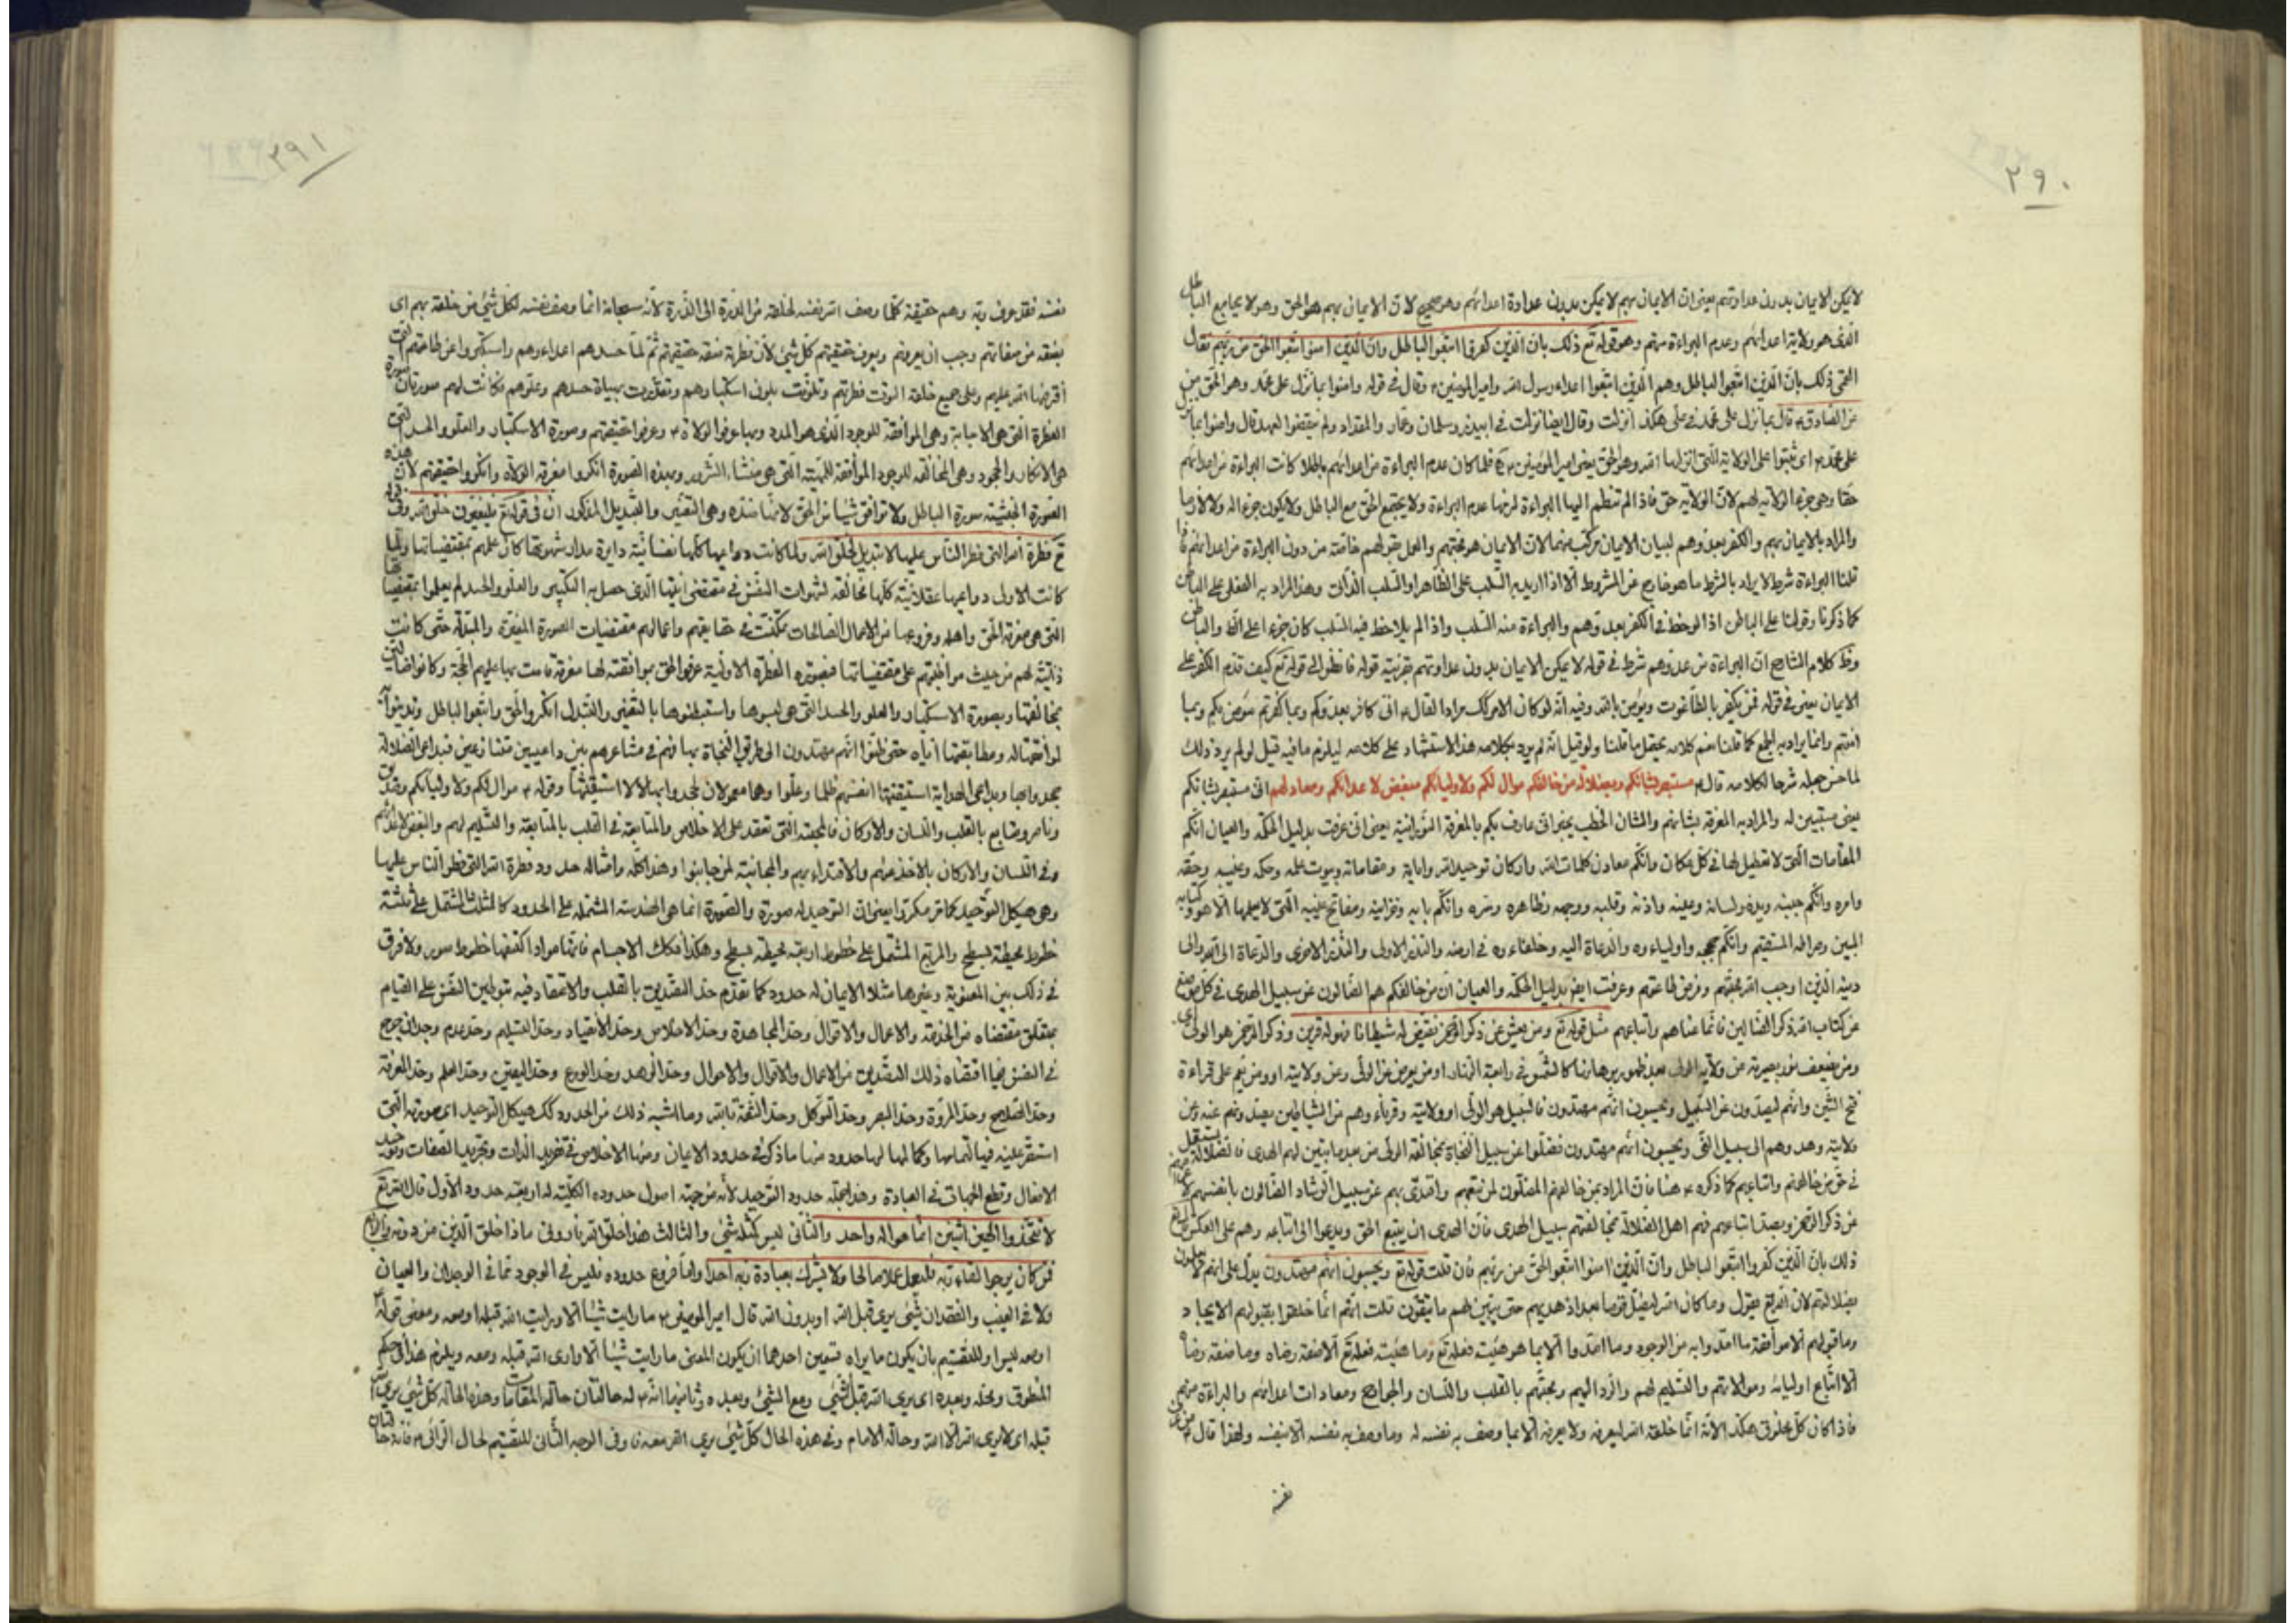 ٢٩٠
لا يمكن الايمان بدون عداوتهم يعنى ان الايمان بهم لا يمكن بدون عداوة اعدائهم وهو صحيح لان الايمان بهم هو الحق وهو لا يجامع الباطل
الذى هو ولاية اعدائهم وعدم البراءة منهم وهو قوله تع ذلك بان الذين كفروا اتبعوا الباطل وان الذين امنوا اتبعوا الحق من ربهم فقال
القمى ذلك بان الذين اتبعوا الباطل وهم الذين اتبعوا اعداء رسول الله وامير المؤمنين ء وقال فى قوله وامنوا بما نزل على محمد وهو الحق من
عن الصادق ء قال بما نزل على محمد فى على هكذا نزلت وقال ايضا نزلت فى ابيذر وسلمان وعمار والمقداد ولم ينقضوا العهد قال وامنوا بما
على محمد ص اى ثبتوا على الولاية التى انزلها الله وهو الحق يعنى امير المؤمنين ء فلما كان عدم البراءة من اعدائهم باطلا كانت البراءة من اعدائهم
حقا وهى جزء الولاية لهم لان الولاية حق فاذا لم تنظم اليها البراءة لزمها عدم البراءة ولا يجتمع الحق مع الباطل ولا يكون جزء اله ولا لازما
والمراد بالايمان بهم والكفر بعدوهم لبيان الايمان مركب منهما لان الايمان هو محبتهم والعمل بقولهم خاصة من دون البراءة من اعدائهم
قلنا البراءة شرط لا يراد بالشرط ما هو خارج عن المشروط الا اذا اريد به السلب على الظاهر او السلب الذات وهذا المراد به
كما ذكرنا وقولنا على الباطن اذا لوحظ فى الكفر بعدوهم والبراءة منه السلب واذا لم يلاحظ فيه السلب كان جزء اعلى
كلام الشارح ان البراءة من عدوهم شرط فى قوله لا يمكن الايمان بدون عداوتهم بقرينة قوله فانظر الى قوله تع كيف قدم الكفر على
الايمان يعنى فى قوله فمن يكفر بالطاغوت ويؤمن بالله وفيه انه لو كان الامر كك مرادا لقال ء انى كافر بعدوكم وبما كفرتم مؤمن بكم وبما
امنتم وانما يراد به الجمع كما قلنا نعم كلامه يحتمل ما قلنا ولو قيل انه لم يرد بكلامه هذا الاستشهاد على كلامه ليلزم ما فيه قيل لو لم يرد ذلك
لما حسن جعله شرحا لكلامه قال ء مستبصر بشانكم وبضلالة من خالفكم موال لكم ولاوليائكم مبغض لاعدائكم ومعاد لهم انى مستبصر بشانكم
يعنى مستبين له والمراد به المعرفة بشانهم والشان الخطب يعنى انى عارف بكم بالمعرفة النورانية يعنى انى عرفت بدليل الحكمة والعيان انكم
المقامات التى لا تعطيل لها فى كل مكان وانكم معادن كلمات الله واركان توحيد الله واياته ومقاماته وبيوت علمه وحكمه وغيبه وحقه
وامره وانكم جنبه ويده ولسانه وعينه واذنه وقلبه ووجهه وظاهره وسره وانكم بابه وخزانته ومفاتح غيبه التى لا يعلمها الا هو وكتابه
المبين وصراطه المستقيم وانكم حججه واولياءه والدعاة اليه وخلفاءه فى ارضه والنذر الاولى والنذر الاخرى والدعاة الى الله والى
دينه الذين اوجب الله محبتهم وفرض طاعتهم وعرفت ايضا بدليل الحكمة والعيان ان من خالفكم هم الضالون عن سبيل الهدى فى كل موضع
عن كتاب الله ذكر الضالين فانما عناهم واتباعهم مثل قوله تع ومن يعش عن ذكر الرحمن نقيض له شيطانا فهو له قرين وذكر الرحمن هو الولى اى
ومن ضيعف نور بصيرته عن ولاية الولى بعد ظهور برهانها كالشمس فى رابعة النهار او من يعرض عن الولى وعن ولايته او ومن يعم على قراءة
فتح الشين وانهم ليصدون عن السبيل ويحسبون انهم مهتدون فالسبيل هو الولى او ولايته وقرناء وهم من الشياطين
ولايته وهدوهم الى سبيل الغى ويحسبون انهم مهتدون فضلوا عن سبيل النجاة بمخالفة الولى من بعد ما تبين لهم الهدى
فى حق من خالفهم واتباعهم كما ذكره ء هنا فان المراد بمن خالفهم المضلون لمن تبعهم واقتدى بهم عن سبيل الرشاد الضالون بانفسهم
عن ذكر الرحمن وبصد اتباعهم فهم اهل الضلالة بمخالفتهم سبيل الهدى فان الهدى ان يتبع الحق ويدعوا الى اتباعه وهم على العكس
ذلك بان الذين كفروا اتبعوا الباطل وان الذين امنوا اتبعوا الحق من ربهم فان قلت قوله تع ويحسبون انهم مهتدون يدل على انهم لا يعلمون
بضلالتهم لان الله تع يقول وما كان الله ليضل قوما بعد اذ هديهم حتى يبين لهم ما يتقون قلت انهم انما خلقوا بقبولهم الايجاد
وما قبولهم الا موافقة ما امدوا به من الوجود وما امدوا الا بما هو هيئت فعله تع وما هيئت فعله تع الا صفة رضاه وما صفة رضاه
الا اتباع اوليائه وموالاتهم والتسليم لهم والرد اليهم ومحبتهم بالقلب واللسان والجوارح ومعادات اعدائهم والبراءة منهم
فاذا كان كل مخلوق هكذا لانه انما خلقه الله ليعرفه ولا يعرفه الا بما وصف به نفسه له وما وصف به نفسه الا نفسه ولهذا قال ء من عرف
نفسه
٢٩١
نفسه فقد عرف ربه وهم حقيقة كلما وصف الله نفسه لخلقه من الدرة الى الذرة لانه سبحانه انما وصف نفسه لكل شئ من خلقه بهم اى
بصفة من صفاتهم وجب ان يعرفهم ويعرف حقيقتهم كل شئ لان فطرته صفة حقيقتهم ثم لما حسدهم اعداءوهم واستكبروا عن طاعتهم التى
افترضها الله عليهم وعلى جميع خلقه فطرتهم وتلونت بلون استكبارهم وتغيرت بهيأة حسدهم وعلوهم فكانت لهم صورتان صورة
الفطرة التى هى الاجابة وهى الموافقة للوجود الذى هو المدد وبها عرفوا الولاة ء وعرفوا حقيقتهم وصورة الاستكبار والعلو والحسد التى
هى الانكار والجحود وهى المخالفة للوجود الموافقة للمهية التى هى منشاء الشرور وبهذه الصورة انكروا معرفة الولاة وانكروا حقيقتهم لان هذه
الصورة الخبيثة صورة الباطل ولا توافق شيئا من الحق لانها ضده وهى التغيير والتبديل المذكوران فى قوله تع فليغيرن خلق الله وفى قوله
تع فطرة الله التى فطر الناس عليها لا تبديل لخلق الله ولما كانت دواعيها كلها نفسانية دايرة مدار شهوتها كان عملهم بمقتضياتها ولما
كانت الاولى دواعيها عقلانية كلها مخالفة لشهوات النفس فى مقتضى انيتها الذى حصل به التكبر والعلو والحسد لم يعملوا بمقتضياتها
التى هى معرفة الحق واهله وفروعها من الاعمال الصالحات تمكنت فى حقايقهم واعمالهم مقتضيات الصورة المغيرة والمبدلة حتى كانت
ذاتية لهم من حيث مواظبتهم على مقتضياتها فبصورة الفطرة الاولية عرفوا الحق بموافقته لها معرفة قامت بها عليهم الحجة وكانوا ضالين
بمخالفتها وبصورة الاستكبار والعلو والحسد التى هى لبسوها واستبطنوها بالتغيير والتبدل انكروا الحق واتبعوا الباطل وتدينوا به
لموافقتها له ومطابقتها اياه حتى ظنوا انهم مهتدون الى طريق النجاة بها فهم فى مشاعرهم بين داعيين متنازعين فبداعى الضلالة
جحدوا بها وبداعى الهداية استيقنتها انفسهم ظلما وعلوا وقوله ء موال لكم ولاوليائكم
وناصر ومتابع بالقلب واللسان والاركان فالمحبة التى تعقد على الاخلاص والمتابعة فى القلب بالمتابعة والتسليم لهم والبغض لاعدائهم
وفى اللسان والاركان بالاخذ عنهم والاقتداء بهم والمجانبة لمن جانبوا وهذا كله وامثاله حدود فطرة الله التى فطر الناس عليها
وهى هيكل التوحيد كما مر مكررا يعنى ان التوحيد له صورة والصورة انما هى الهندسة المشتملة على الحدود كالمثلث المشتمل على ثلثة
خطوط محيطة بسطح والمربع المشتمل على خطوط اربعة محيطة بسطح وهكذا وكك الاجسام فانها مواد اكتنفها خطوط صور ولا فرق
فى ذلك بين المعنوية وغيرها مثلا الايمان له حدود كما تقدم حد التصديق بالقلب والاعتقاد فيه بتوطين النفس على القيام
بمقتضاه من الخدمة والاعمال والاقوال وحد المجاهدة وحد الاخلاص وحد الانقياد وحد التسليم وحد عدم وجدان حرج
فى النفس فيما اقتضاه ذلك التصديق من الاعمال والاقوال والاحوال وحد الزهد وحد الورع وحد اليقين وحد العلم وحد المعرفة
وحد الصلاح وحد المروة وحد الصبر وحد التوكل وحد الثقة بالله وما اشبه ذلك من الحدود كك هيكل التوحيد اى صورته التى
استقر عليه فيها لها حدود منها ما ذكر فى حدود الايمان ومنها الاخلاص فى تفريد الذات وتجريد الصفات وتوحيد
الافعال وقطع الجهات فى العبادة وهذا جملة حدود التوحيد لانه من جهة اصول حدوده الكلية له اربعة حدود الاول قال الله تع
لا تتخذوا الهين اثنين انما هو اله واحد والثانى ليس كمثله شئ والثالث هذا خلق الله فارونى ماذا خلق الذين من دونه والرابع
فمن كان يرجوا لقاء ربه فليعمل عملا صالحا ولا يشرك بعبادة ربه احدا واما فروع حدوده فليس فى الوجود ثمة فى الوجدان والعيان
ولا فى الغيب والفقدان شئ يرى قبل الله او بدون الله قال امير المؤمنين ء ما رايت شيئا الا ورايت الله قبله او معه ومعنى قوله ء
او معه ليس او للتقسيم بان يكون ما يراه قسمين احدهما ان يكون المعنى ما رايت شيئا الا وارى الله قبله ومعه ويلزم هذا فى حكم
المنطوق وبعده اى يرى الله قبل الشئ ومع الشئ وبعده وثانيهما انه ء له حالتان حالة المقامات وهذه الحالة كل شئ يرى الله
قبله اى لا يرى الا الله وحالة الامام وفى هذه الحال كل شئ يرى الله معه وفى الوجه الثانى للتقسيم لحال الرائى ء